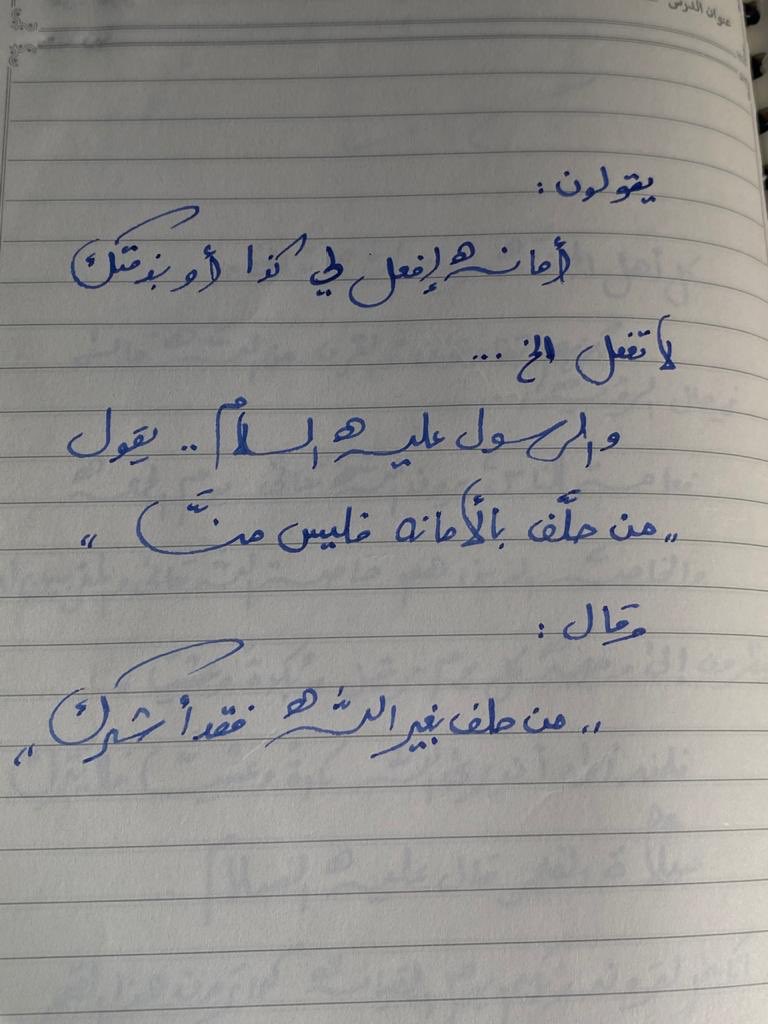 عنوان الدرس
يقولون :
أمانه إفعل لي كذا أو بذمتك
لا تفعل الخ ...
والرسول عليه السلام .. يقول
„ من حلَّف بالأمانه فليس منَّا “
وقال :
„ من حلف بغير الله فقد أشرك “